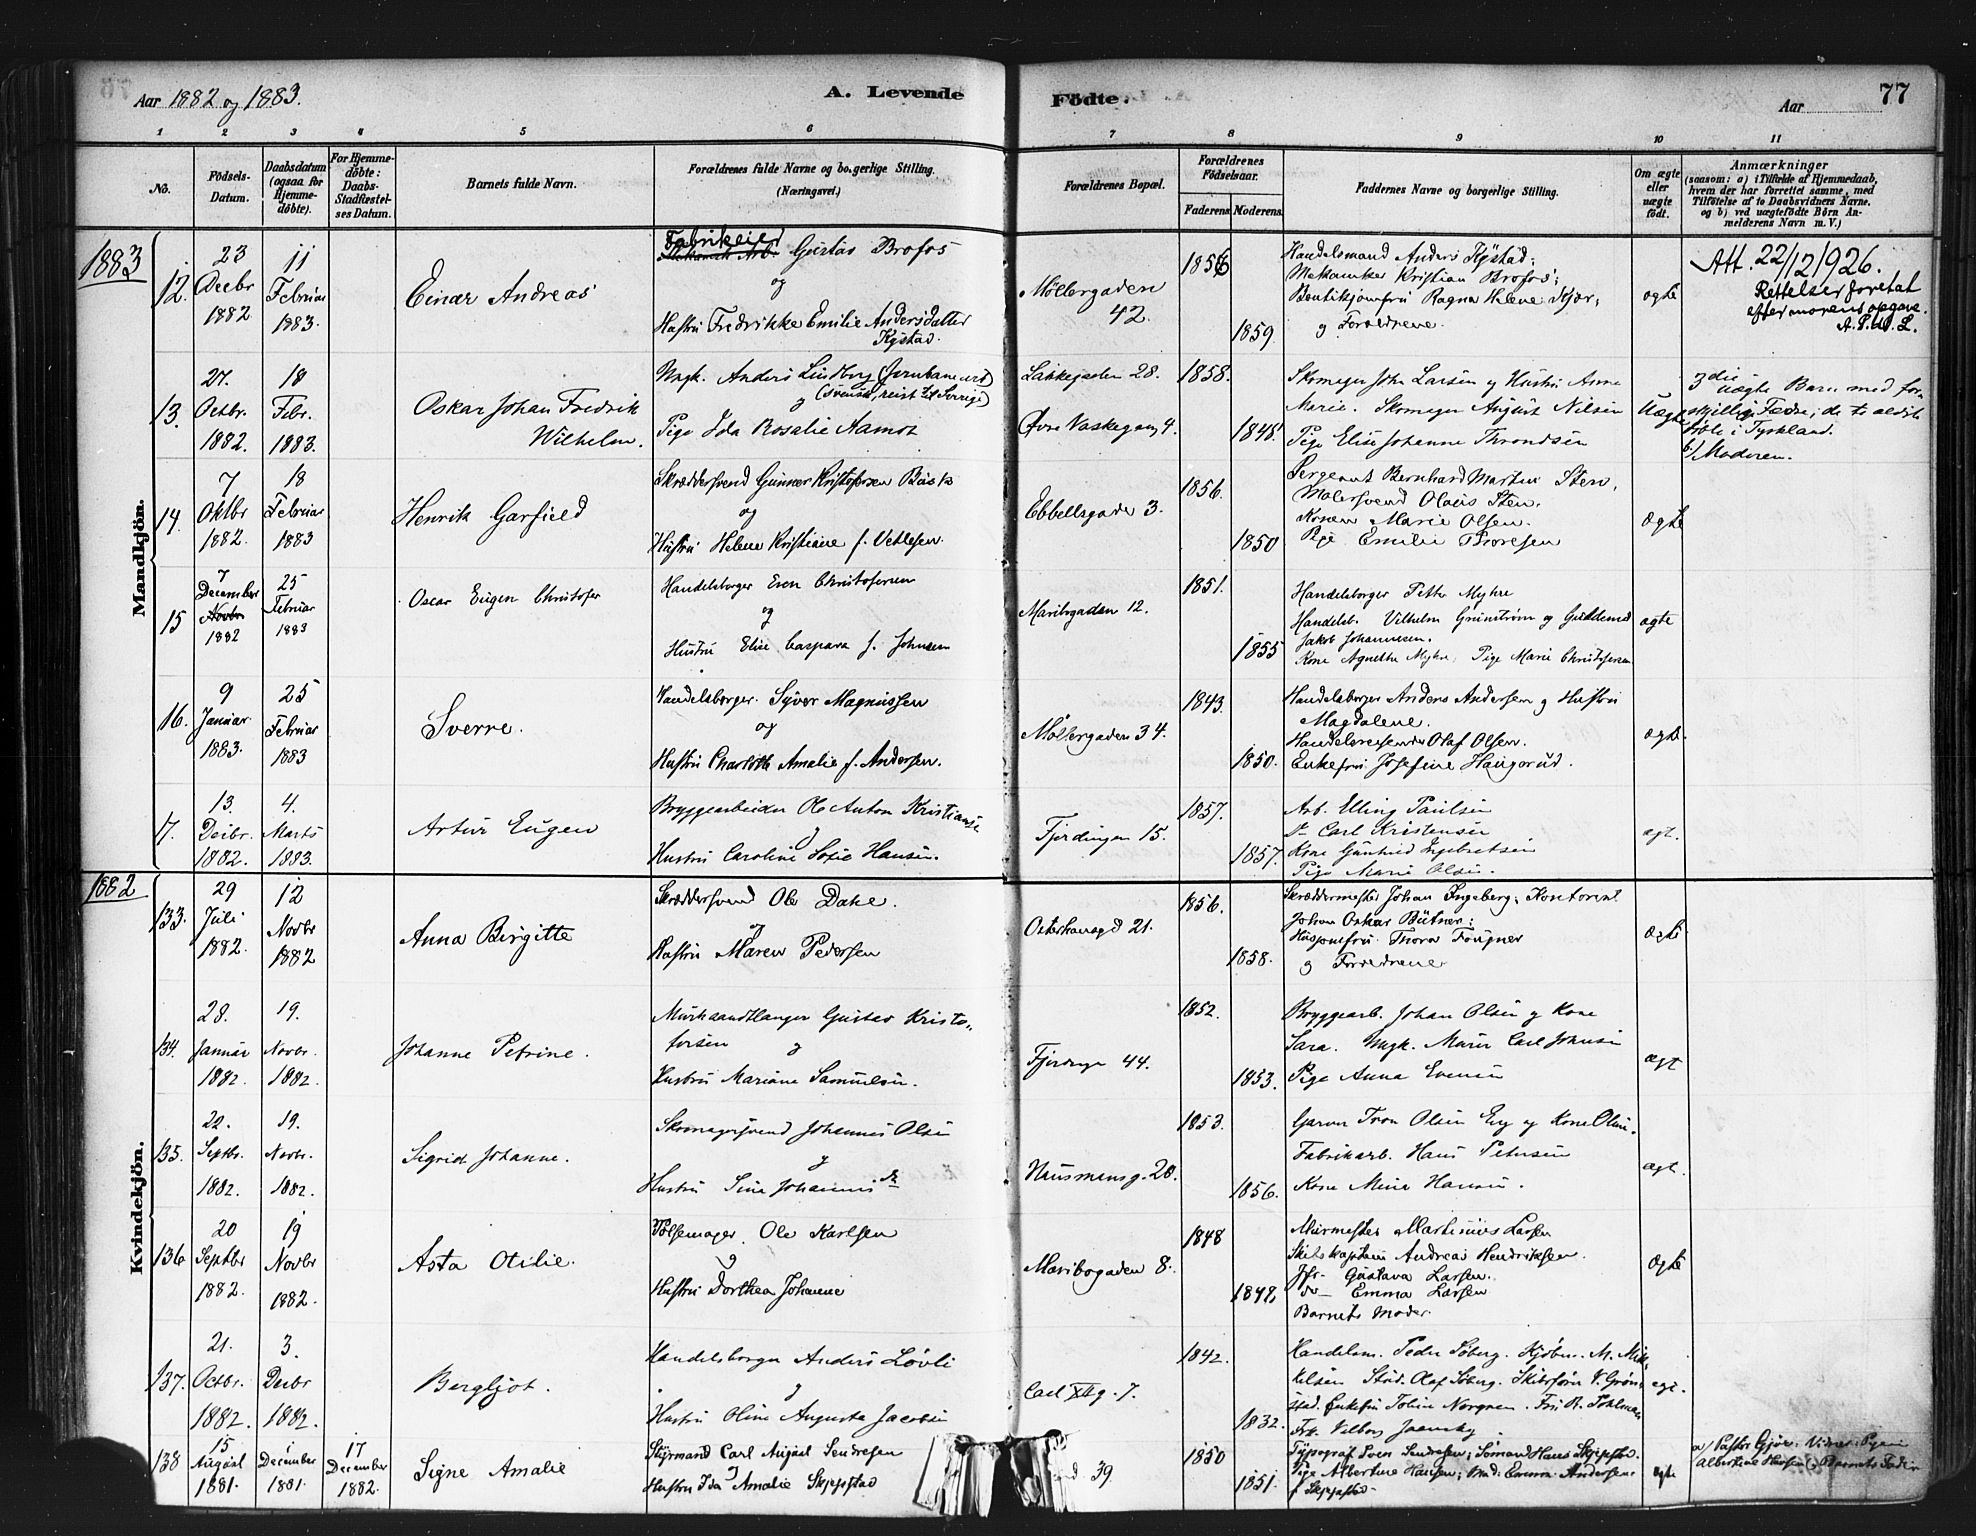 Aar 1882 og 1883.
A. Levende
Födte.
Aar
77
1 2 3 4 5 6 7 8 9 10 11
No.
Födsels-Datum.
Daabsdatum (ogsaa for Hjemme-döbte).
For Hjemme-döbte: Daabs-Stadfæstel-ses Datum.
Barnets fulde Navn.
Forældrenes fulde Navne og borgerlige Stilling. (Næringsvei.)
Forældrenes Bopæl.
Forældrenes Födselsaar.
Faderens
Moderens
Faddernes Navne og borgerlige Stilling.
Om ægte eller uægte födt.
Anmærkninger
(saasom: a) i Tilfælde af Hjemmedaab,
hvem der har forrettet samme, med
Tilföielse af to Daabsvidners Navne.
og b) ved uægtefödte Börn An-
melderens Navn m. V.)
Mandkjön.
1883
12.
23 Decbr 1882
11 Februar 1883.
Einar Andreas
Fabrikeier
Gustav Brofos
og
Hustru Fredrikke Emilie Andersdatter
Kystad.
Möllergaden
42.
1856
1859
Handelsmand Anders Kystad;
Mekaniker Kristian Brofos;
Boutikjomfru Ragna Helene Kjær;
og Forældrene.
ægte
Att. 22/12 1926.
Rettelser foretat
efter morens opgave.
A.P.W.L.
13.
27. Octbr. 1882.
18 Febr. 1883.
Oskar Johan Fredrik
Wilhelm.
Ungk. Anders Lindborg (Jernbanearb)
og (svensk, reist til Sverige)
Pige Ida Rosalie Aamot
Lakkegaden 28.
Øvre Vaskegang 4.
1858.
1848
Skomager John Larsen og Hustru Anne
Marie. Skomager August Nilsen
Pige Elise Johanne Throndsen
Uægte
3die uægte Barn med for-
skjellig Fædre; de to ældste
i Tyskland.
b/ Moderen.
14.
7 Oktbr 1882.
18 Februar 1883
Henrik Garfield
Skræddersvend Gunnar Kristofersen
og
Hustru Helene Kristiane f. Vetlesen.
Ebbellsgade 3.
1856.
1850
Sergeant Bernhard Martin Sten,
Malersvend Olaus Sten.
Konen Marie Olsen.
Pige Emilie Thoresen
Ægte
15
7 December Novbr 1882
25 Februar 1883
Oscar Eugen Christofer
Handelsborger Even Christofersen
og
Hustru Elise Caspara f. Johnsen
Maribogaden 12.
1851.
1855
Handelsborger Petter Myhre
Handelsb. Vilhelm Grunstrøm og Guldsmed
Jakob Johannesen.
Kone Agnethe Myhre, Pige Marie Christofersen
ægte
16.
9 Januar 1883.
25 Februar 1883
Sverre.
Handelsborger. Syver Magnussen
og
Hustru Charlotte Amalie f. Andersen.
Möllergaden 34.
1843.
1850.
Handelsborger Anders Andersen og Hustru
Magdalene.
Handelsreisende Olaf Olsen.
Enkefru Josefine Haugerud.
ægte.
17.
13. Decbr. 1882.
4. Marts 1883.
Artur Eugen
Bryggearbeider Ole Anton Kristiansen
og
Hustru Caroline Sofie Hansen.
Fjerdingen 15.
1857.
1857.
Arb. Elling Paulsen
Carl Kristensen
Kone Gunhild Ingebretsen
Pige Marie Olsen.
ægt.
Kvindekjön.
1882
133.
29 Juli 1882.
12 Novbr 1882
Anna Birgitte
Skræddersvend Ole Dahl.
og
Hustru Maren Pedersen
Osterhausgd 21.
1856.
1858.
Skræddermester Johan Ingeberg; Kontorist
Johan Oskar Bütner;
Husjomfru Thora Fougner
og Forældrene
Ægte.
134.
28. Januar 1882.
19. Novbr. 1882.
Johanne Petrine.
Murhaandlanger Gustav Kristo-
fersen og
Hustru Mariane Samuelsen.
Fjerdingen 44.
1852.
1853.
Bryggearb. Johan Olsen og Kone
Sara. Ungk. Murer Carl Johnsen
Pige Anna Evensen
ægt
135.
22. Septbr. 1882.
19. Novbr. 1882.
Sigrid Johanne.
Skomagersvend Johannes Olsen
og
Hustru Sine Johannesdr
Hausmansg. 20.
1853.
1856.
Garver Tron Olsen Eng og Kone Oline.
Fabrikarb. Hans Petersen
Kone Mina Hansen.
ægt.
136
20 Septbr 1882.
19 Novbr 1882.
Asta Otilie.
Pølsemager. Ole Karlsen
og
Hustru Dorthea Johanne
Maribogaden 8.
1848
1849,
Murmester Martinius Larsen
Skibskaptein Andreas Hendriksen.
Jfr. Gustava Larsen.
do— Emma Larsen
Barnets Moder
Ægte
137.
21. Octbr. 1882.
3. Decbr 1882.
Bergljot.
Handelsborger Anders Løvli
og
Hustru Oline Augusta Jacobsen
Carl XIIg. 7.
1842.
1832.
Handelsm. Peder Söberg. Kjöbm. M. Mik-
kelsen Stud. Olaf Söberg. Skibsförer V. Grøn-
stad. Enkefru Norgren. Fru R. Pohlman
ægt.
138
15 August 1881.
December 1881.
17 December 1882.
Signe Amalie
Styrmand Carl August Sendresen
og
Hustru Ida Amalie Skjepstad
39
1850
1851.
Typograf Sven Sendresen; Sömand Hans Skjepstad.
Pige Albertine Hansen; Mad. Emma Andersen
f. Skjepstad.
ægte
a/ Pastor Gjör. Vidner: Pigen
Albertine Hansen og Barnets Fader